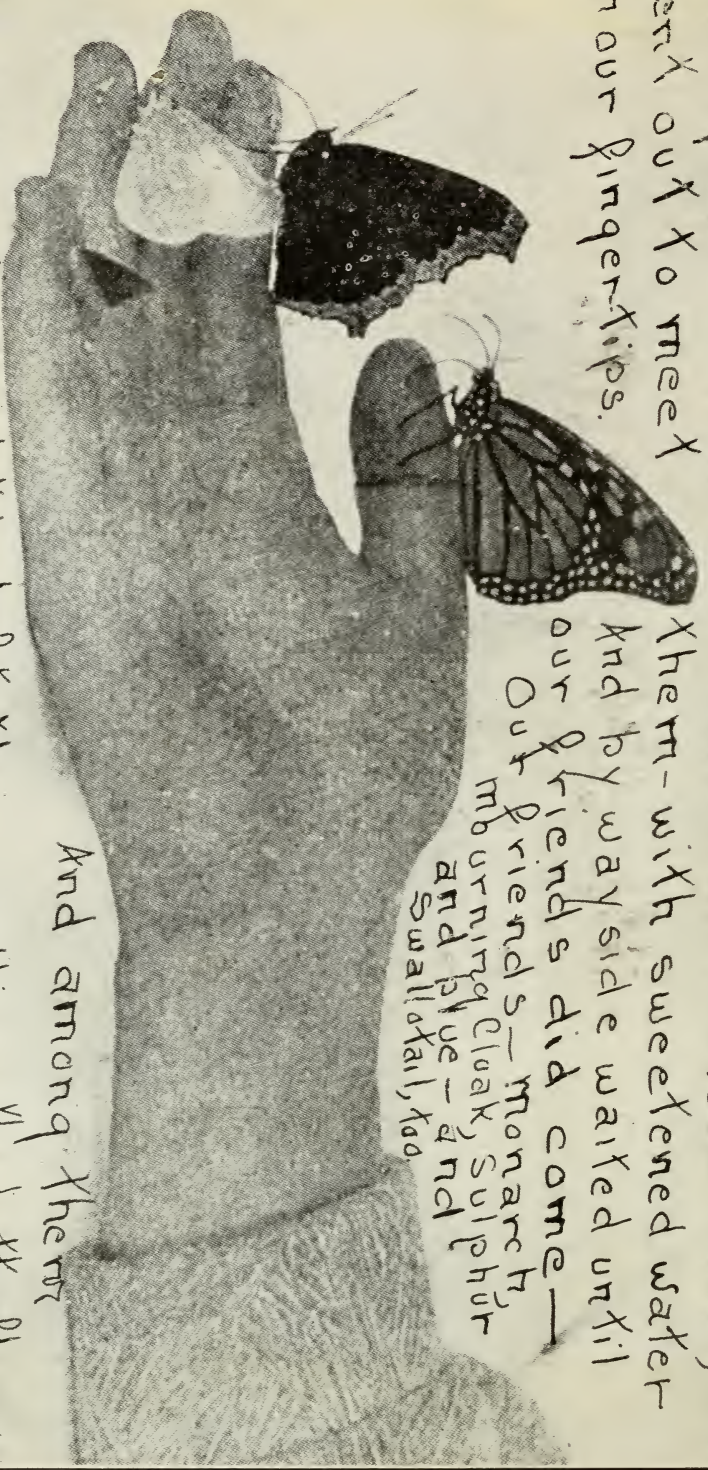 ent out to meet them - with sweetened water
n our fingertips. And by wayside waited until
our friends did come —
Our friends — monarch,
mourning Cloak, Sulphur
and blue — and
Swallotail, too.
And among them